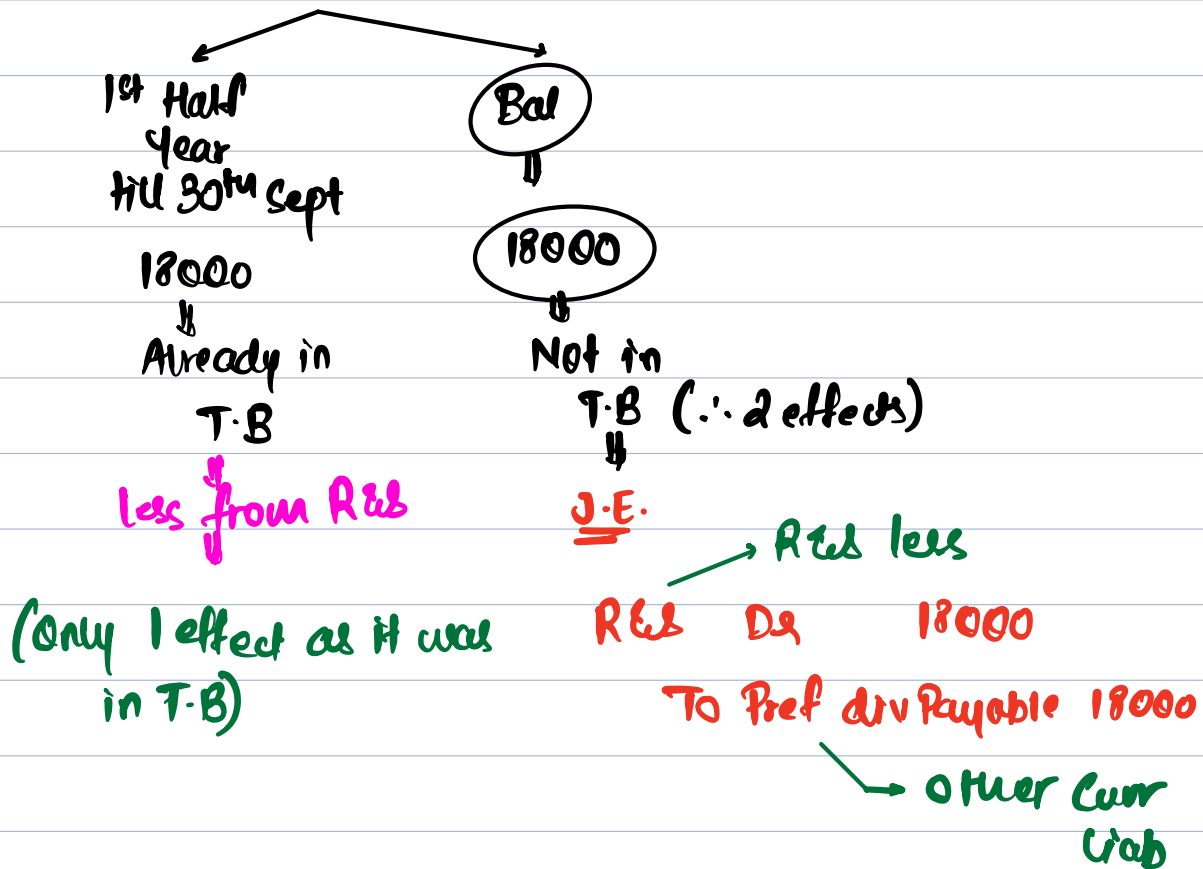 1st Half
Year
till 30th Sept
18000
Already in
T.B
less from R&S
(Only 1 effect as it was
in T.B)
Bal
18000
Not in
T.B (∴ 2 effects)
J.E.
R&S less
R&S Dr 18000
To Pref div Payable 18000
Other Curr
Liab